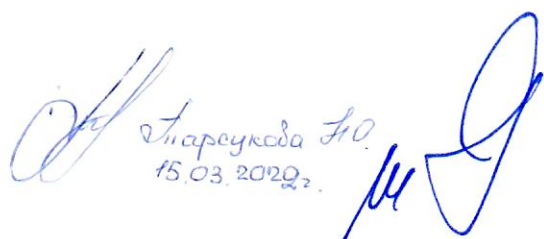 Тарсукова Н.О.
15.03.2022г.